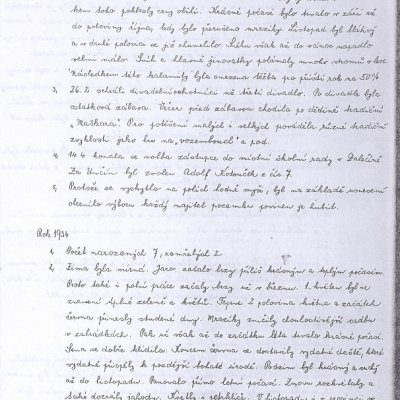 kem toho poklesly ceny obilí. Krásné počasí bylo trvalo v září až
do poloviny října, kdy bylo přerušeno mrazíky. Listopad byl štiplavý
a v druhé polovici se již chumelilo. Sněhu však až do vánoc napadlo
velmi málo. Sníh a hlavně jinovatky polámaly mnoho stromů v lese.
Následkem této kalamity byla omezena těžba pro příští rok na 50%
3. 26.2. sehráli divadelní ochotníci ve divadlo. Po divadle byla
ostatková zábava. Večer před zábavou chodila po dědině tradiční
"Maškara". Pro potěšení malých i velkých prováděla různé tradiční
zvyklosti jako hru na "vozembouch" a pod.
4. 14.4. konala se volba zástupce do místní školní rady v Dalečíně
Za Unčín byl zvolen Adolf z čís. 7.
5. Protože se vyskytlo na polích hodně myší, byl na základě usnesení
obecního výboru každý majitel pozemku povinen je hubit.
Rok 1934
1. Počet narozených 7, zemřelých 2
2. Zima byla mírná. Jaro začalo brzy příliš krásným a teplým počasím
Proto také i polní práce začaly brzy už v březnu. 1. květen byl ve
znamení úplné zeleně a květů. Teprve 2 polovina května a začátek
června přinesly studené dny. Mrazíky zničily choulostivější sadbu
v zahrádkách. Pak se však až do začátku léta trvalo krásné počasí.
Sena se dobře klidila. Koncem června se dostavily vydatné deště, které
vydatně přispěly k pozdější bohaté úrodě. Podzim byl krásný a suchý
až do listopadu. Panovalo přímo letní počasí. Znovu rozkvétaly a
také dozrály jahody.